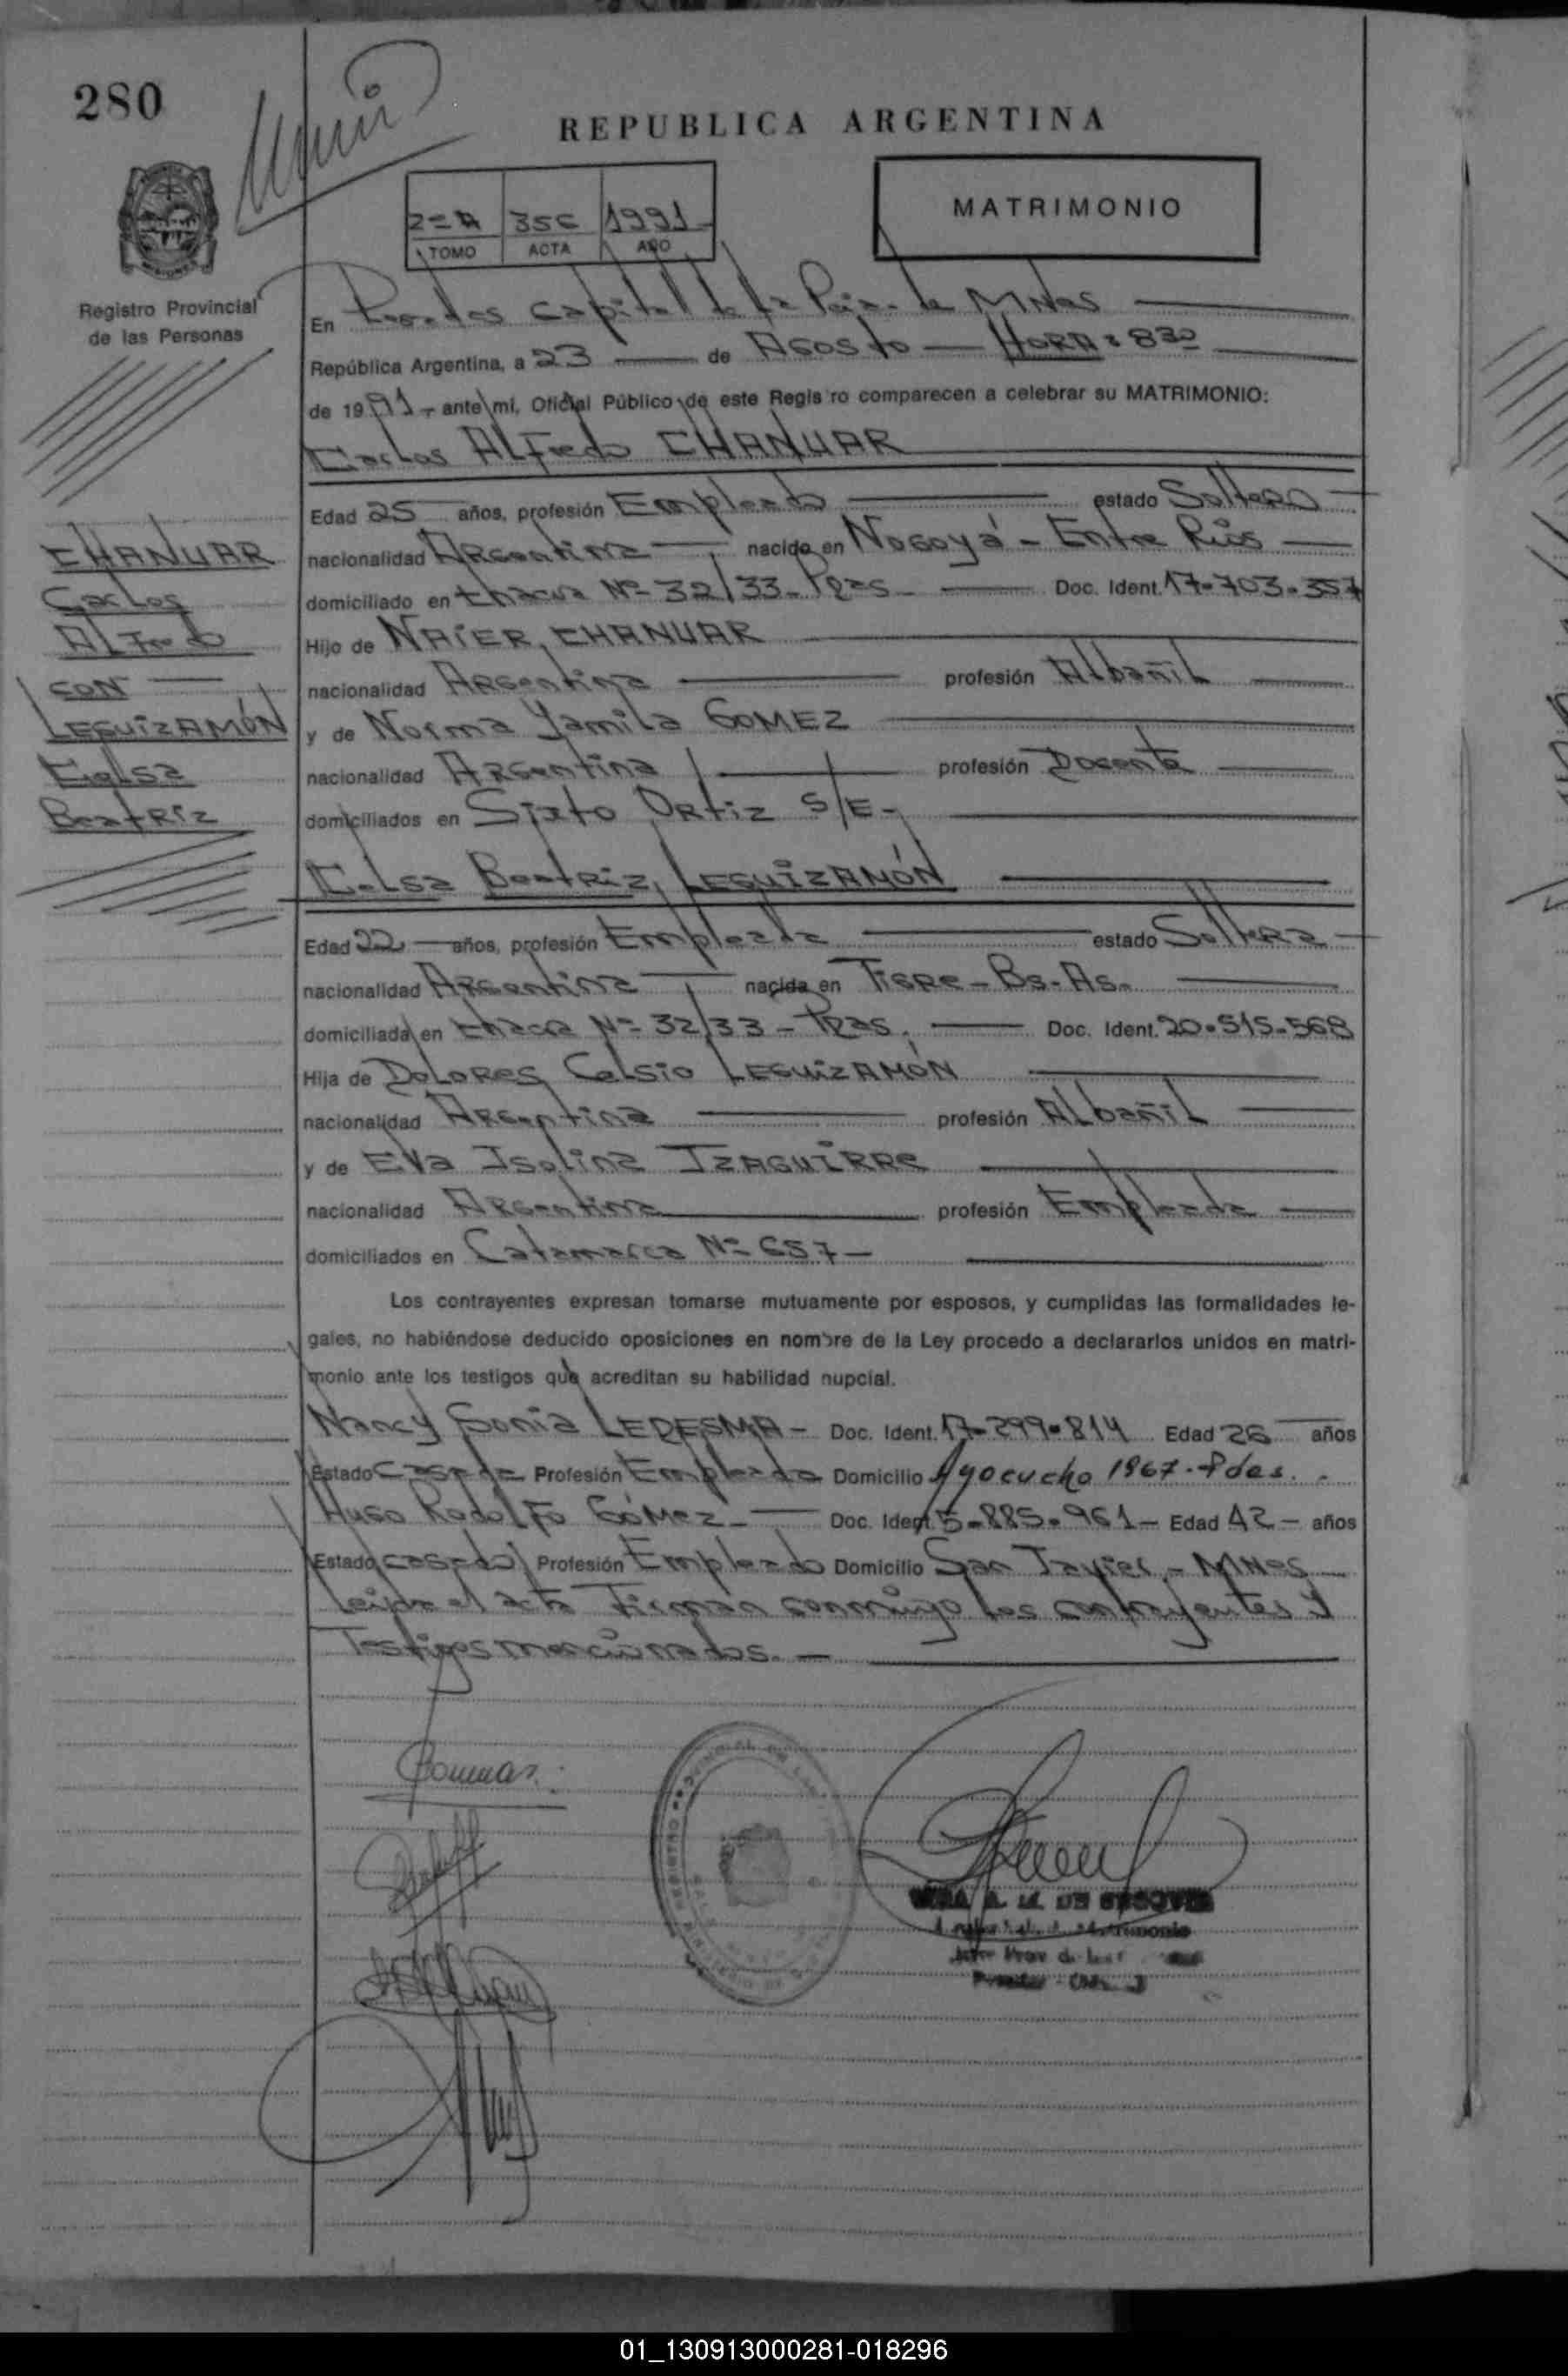 280
REPUBLICA ARGENTINA
2=A 356 1991
TOMO ACTA AÑO
MATRIMONIO
Registro Provincial
de las Personas
En Posadas Capital de la Pcia. de MNes
República Argentina, a 23 de Agosto HORA: 830
de 1991 ante mi, Oficial Público de este Registro comparecen a celebrar su MATRIMONIO:
Carlos ALFredo CHANUAR
Edad 25 años, profesión Empleado estado Soltero
nacionalidad Argentina nacido en Nogoyá - Entre Ríos
domiciliado en Chacra Nº 32/33 - Pdas - Doc. Ident. 17-703-357
Hijo de NAiER CHANUAR
nacionalidad Argentina profesión Albañil
y de Norma Yamila GOMEZ
nacionalidad Argentina profesión Docente
domiciliados en Sixto Ortiz S/E -
CHANUAR
Carlos
ALFredo
CON
LEGUiZAMÓN
Celsa
Beatriz
Celsa Beatriz LEGUiZAMÓN
Edad 22 años, profesión Empleada estado Soltera
nacionalidad Argentina nacida en Tigre - Bs. As.
domiciliada en Chacra Nº 32/33 - Pdas. Doc. Ident. 20-515-568
Hija de DoLoRes Celsio LEGUiZAMÓN
nacionalidad Argentina profesión Albañil
y de Eva Isolina IZAGUiRRe
nacionalidad Argentina profesión Empleada
domiciliados en Catamarca Nº 657 -
Los contrayentes expresan tomarse mutuamente por esposos, y cumplidas las formalidades le-
gales, no habiéndose deducido oposiciones en nombre de la Ley procedo a declararlos unidos en matri-
monio ante los testigos que acreditan su habilidad nupcial.
Nancy Sonia LEDESMA - Doc. Ident. 17-299-814 Edad 26 años
Estado Casada Profesión Empleada Domicilio Ayacucho 1967 - Pdas.
Hugo Rodolfo GóMez - Doc. Ident. 5-885-961 - Edad 42 - años
Estado casado Profesión Empleado Domicilio San Javier - MNes
Leida el acta Firman conmigo los contrayentes y
Testigos mencionados. -
DE
Matrimonio